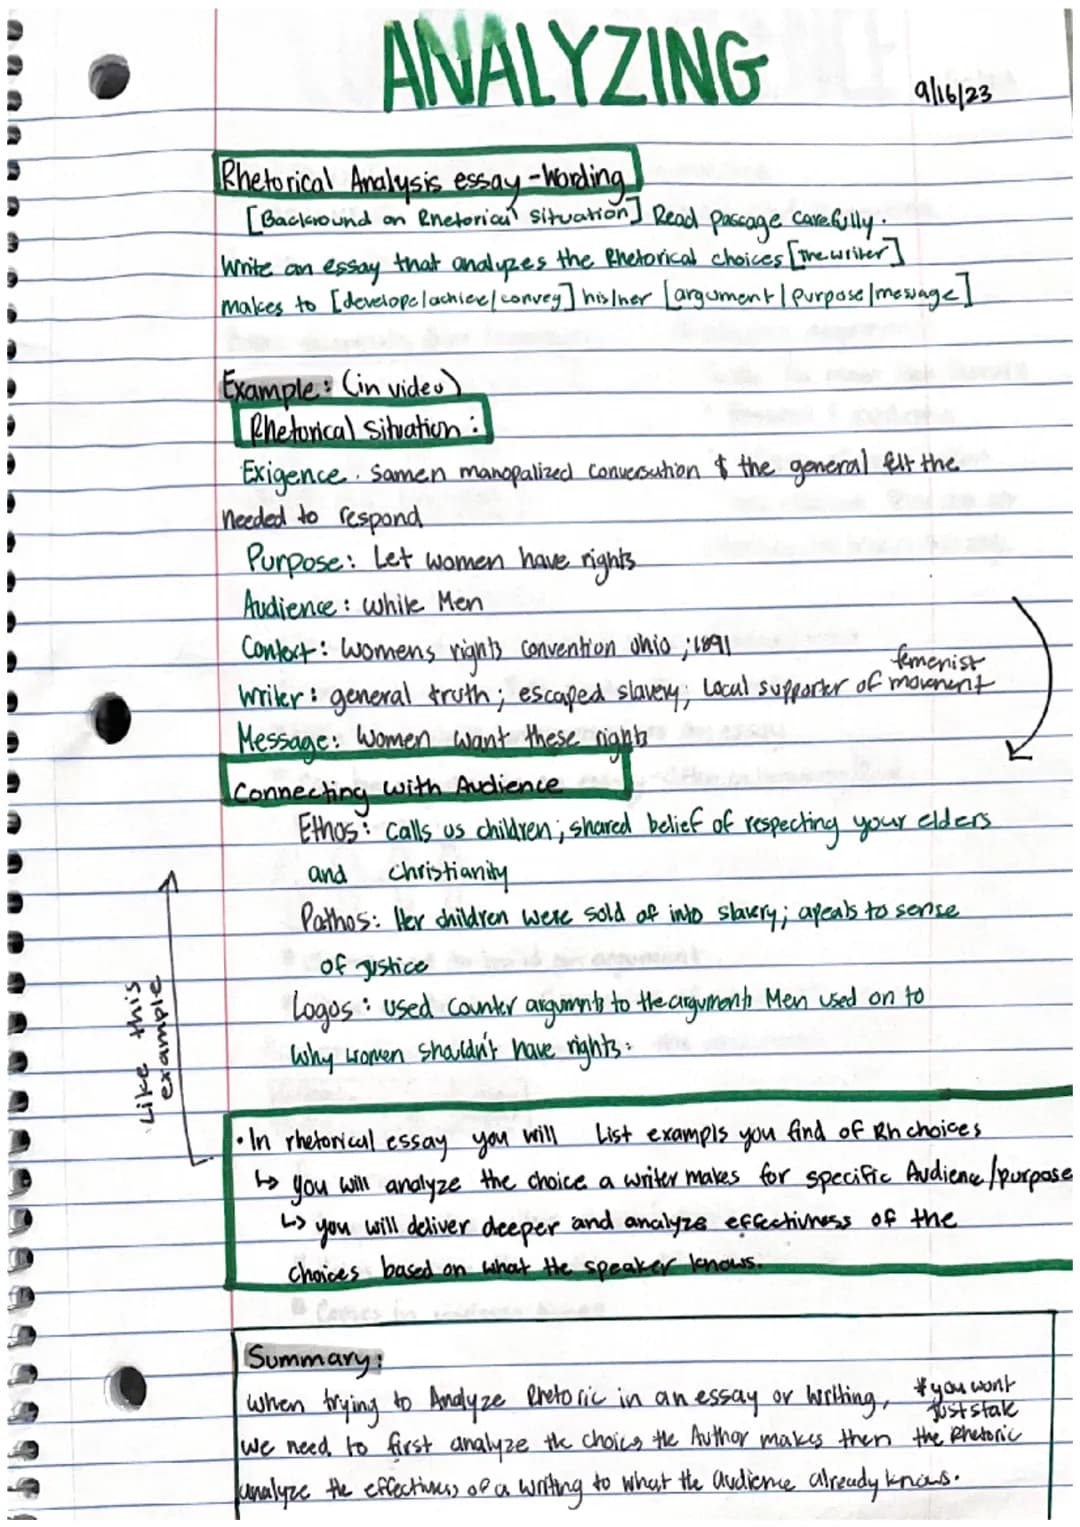 ANALYZING
9/16/23
Rhetorical Analysis essay - Wording
[Backround on Rhetorical situation] Read passage carefully.
Write an essay that analyzes the Rhetorical choices [The writer]
makes to [develope/achieve/convey] his/her [argument/purpose/message]
Example: (in video)
Rhetorical Situation:
Exigence. Samen manopalized conversation & the general felt the
needed to respond
Purpose: Let women have rights
Audience: While Men
Context: Womens rights convention Ohio; 1891
femenist
Writer: general truth; escaped slavery; Local supporter of movement
Message: Women want these rights
Connecting with Audience
Ethos: Calls us children; shared belief of respecting your elders
and christianity
Pathos: Her children were sold of into slavery; apeals to sense
of justice
Logos: used counter argumnts to the arguments Men used on to
why women shouldn't have rights:
Like this
example
• In rhetorical essay you will List exampls you find of Rh choices
↳ you will analyze the choice a writer makes for specific Audience/purpose
↳ you will deliver deeper and analyze effectivness of the
choices based on what the speaker knows.
Summary:
When trying to Analyze Rhetoric in an essay or writing,
we need to first analyze the choics the Author makes then
analyze the effectivness of a writing to what the audience already knows.
*you wont
just state
the Rhetoric